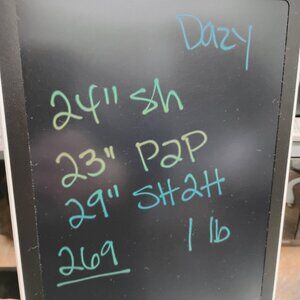 Dazy
24" sh
23" P2P
29" SH2H
269 1 lb